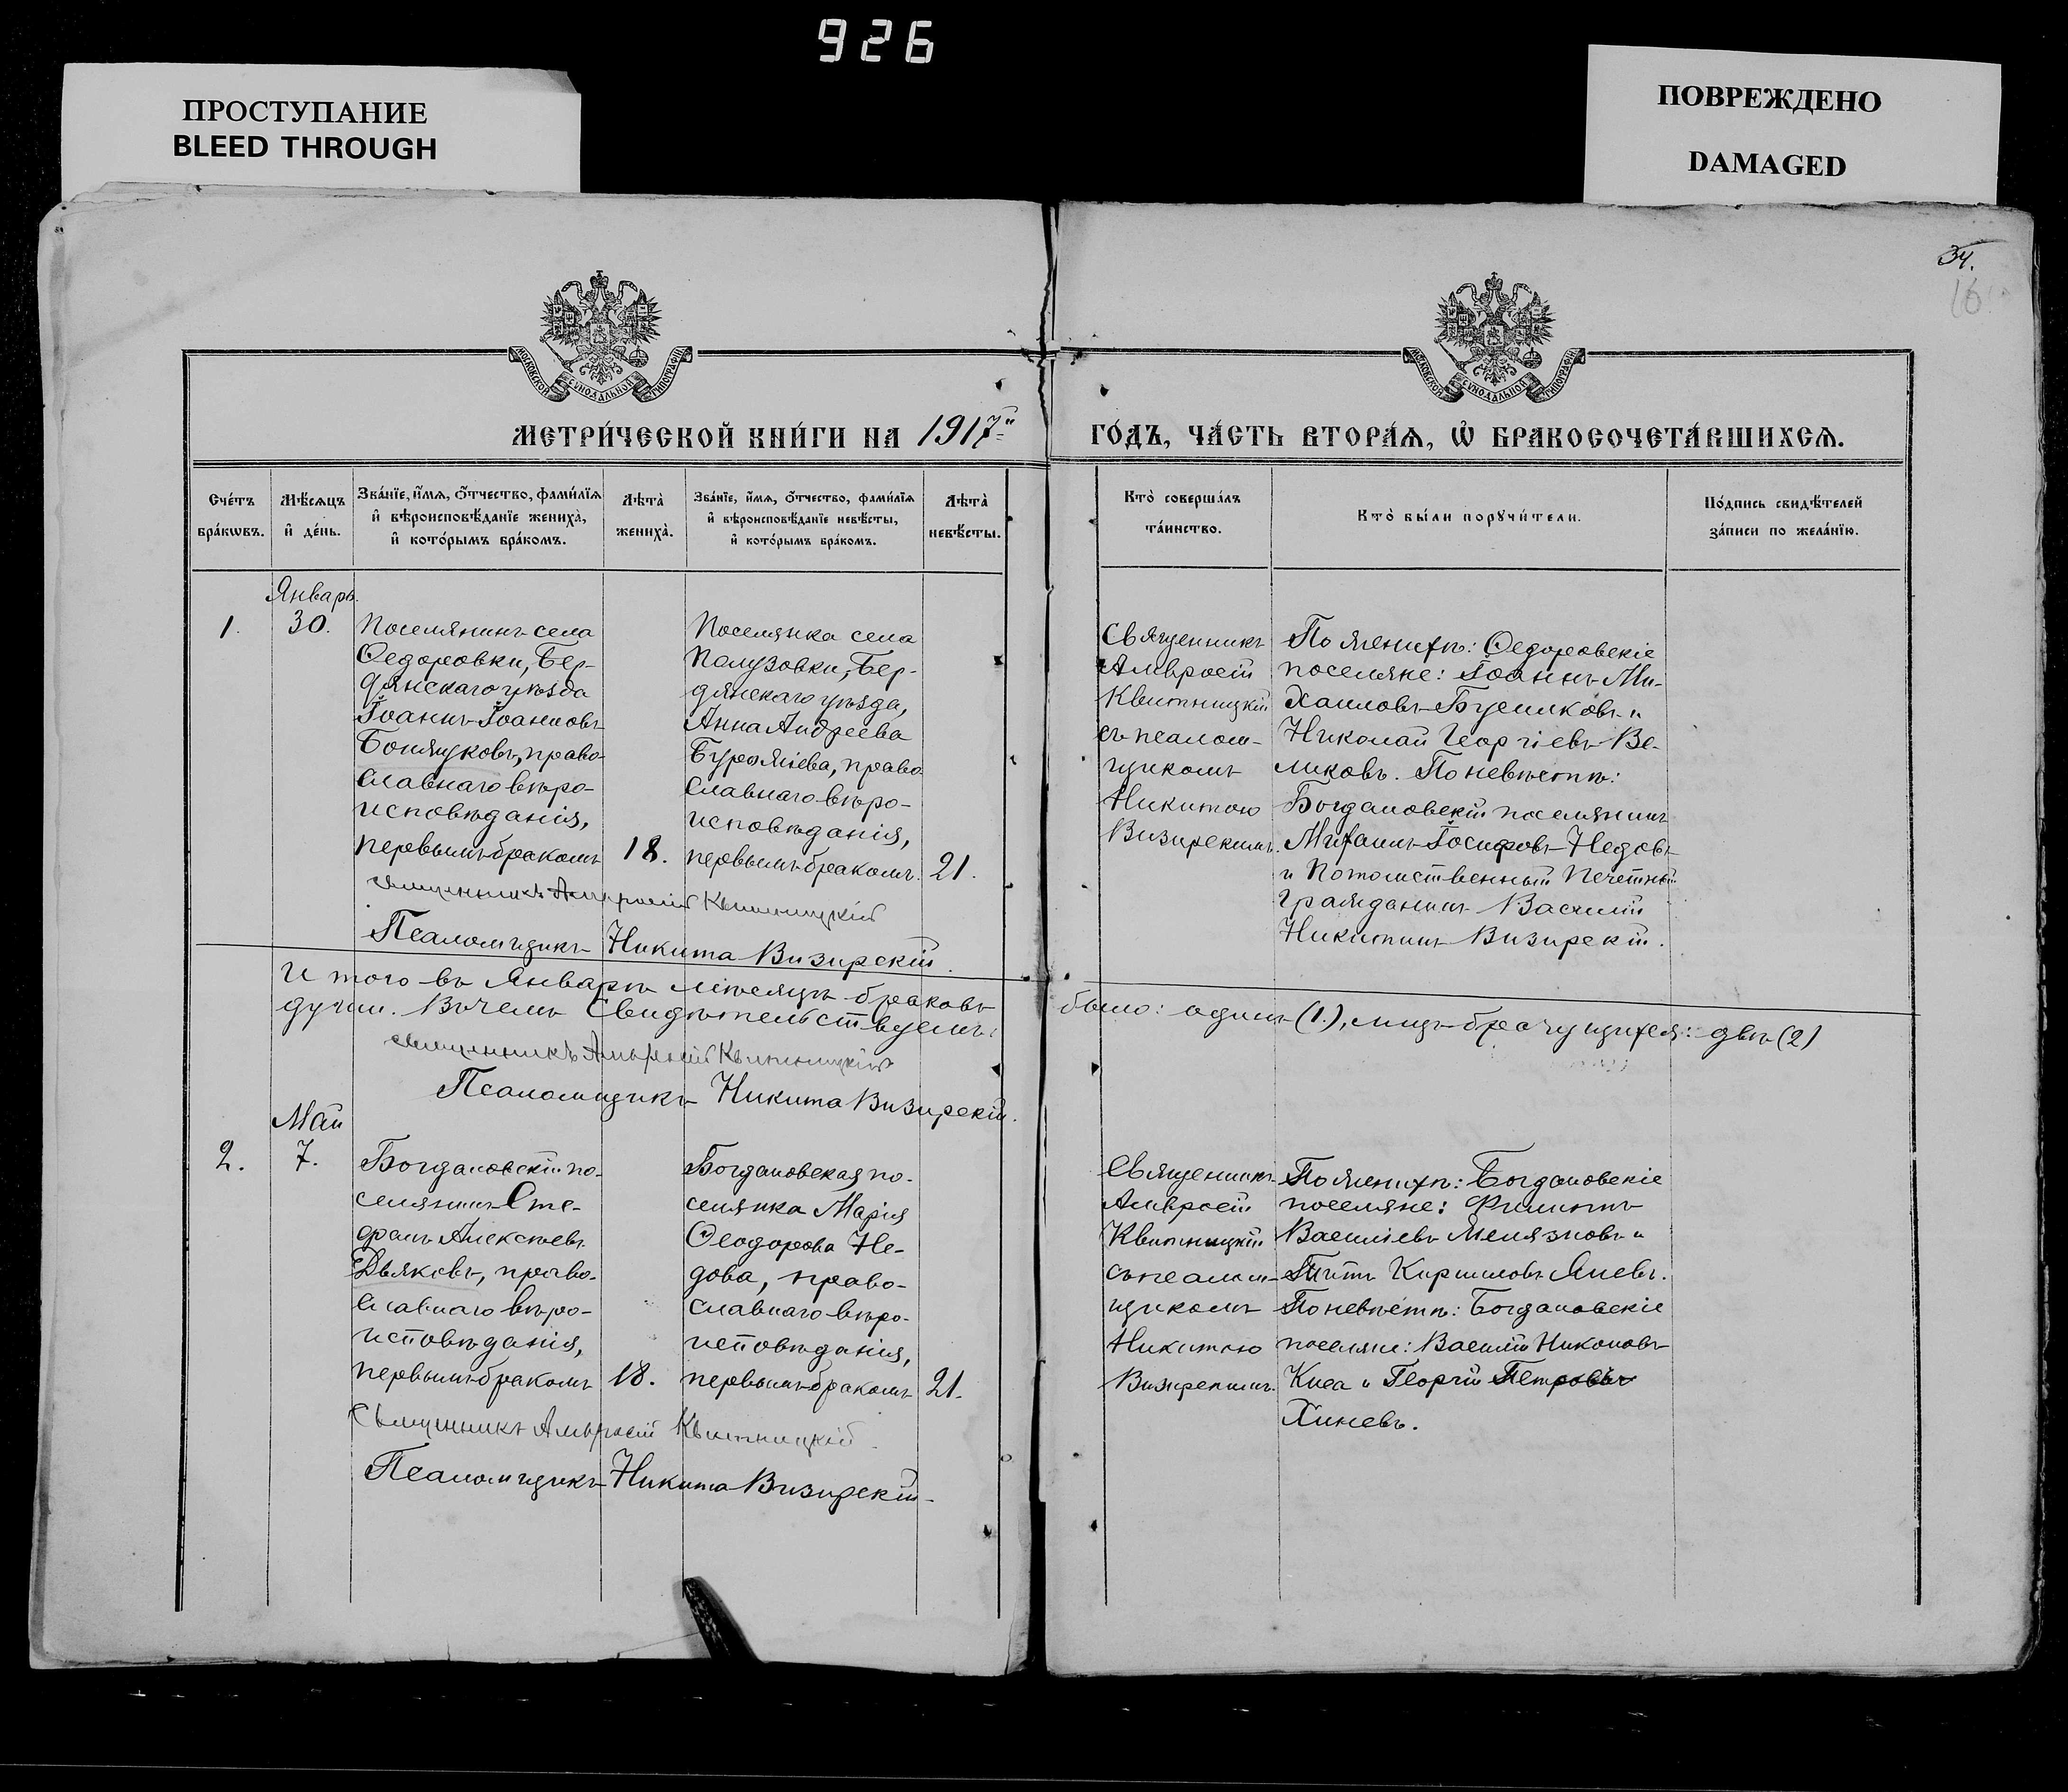 926
ПРОСТУПАНИЕ
BLEED THROUGH
ПОВРЕЖДЕНО
DAMAGED
34.
16
МОСКОВСКОЙ СѴНОДАЛЬНОЙ ТИПОГРАФІИ
МОСКОВСКОЙ СѴНОДАЛЬНОЙ ТИПОГРАФІИ
МЕТРИ́ЧЕСКОЙ КНИ́ГИ НА 1917й
ГО́ДЪ, ЧА́СТЬ ВТОРА́Ѧ, Ѡ҆ БРАКОСОЧЕТА́ВШИХСѦ.
Сче́тъ
бра́кѡвъ.
Мѣ́сѧцъ
и҆ де́нь.
Зва́нїе, и҆́мѧ, ѻ҆́тчество, фами́лїѧ
и҆ вѣроисповѣ́данїе жениха̀,
и҆ кото́рымъ бра́комъ.
Лѣта̀
жениха̀.
Зва́нїе, и҆́мѧ, ѻ҆́тчество, фами́лїѧ
и҆ вѣроисповѣ́данїе невѣ́сты,
и҆ кото́рымъ бра́комъ.
Лѣта̀
невѣ́сты.
Кто̀ соверша́лъ
та́инство.
Кто̀ бы́ли порꙋчи́тели.
По́дпись свидѣ́телей
за́писи по жела́нїю.
Январь.
1.
30.
Поселянинъ села
Ѳедоровки, Бер-
дянскаго уѣзда
Іоаннъ Іоанновъ
Бонцуковъ, право-
славнаго вѣро-
исповѣданія,
первымъ бракомъ
18.
Поселянка села
Полузовки, Бер-
дянскаго уѣзда,
Анна Андреева
Бурлжіева, право-
славнаго вѣро-
исповѣданія,
первымъ бракомъ.
21.
Священникъ
Амвросій
Квитницкій
съ псалом-
щикомъ
Никитою
Визирскимъ.
По женихѣ: Ѳедоровскіе
поселяне: Іоаннъ Ми-
хаиловъ Бушиковъ и
Николай Георгіевъ Ве-
ликовъ. По невѣстѣ:
Богдановскій поселянинъ
Михаилъ Іосифовъ Недовъ
и Потомственный Почетный
гражданинъ Василій
Никитинъ Визирскій.
Священникъ Амвросій Квитницкій
Псаломщикъ Никита Визирскій.
Итого въ Январѣ мѣсяцѣ браковъ было: одинъ (1.), лицъ брачущихся: двѣ (2)
души. Въ чемъ Свидѣтельствуемъ:
Священникъ Амвросій Квитницкій
Псаломщикъ Никита Визирскій.
Май
2.
7.
Богдановскій по-
селянинъ Сте-
фанъ Алексѣевъ
Дьяковъ, право-
славнаго вѣро-
исповѣданія,
первымъ бракомъ
18.
Богдановская по-
селянка Марія
Ѳеодорова Не-
дова, право-
славнаго вѣро-
исповѣданія,
первымъ бракомъ
21.
Священникъ
Амвросій
Квитницкій
съ псалом-
щикомъ
Никитою
Визирскимъ.
По женихѣ: Богдановскіе
поселяне: Филиппъ
Василіевъ Мелязновъ и
Титъ Кирилловъ Яневъ.
По невѣстѣ: Богдановскіе
поселяне: Василій Никоновъ
Киса и Георгій Петровъ
Хиневъ.
Священникъ Амвросій Квитницкій
Псаломщикъ Никита Визирскій